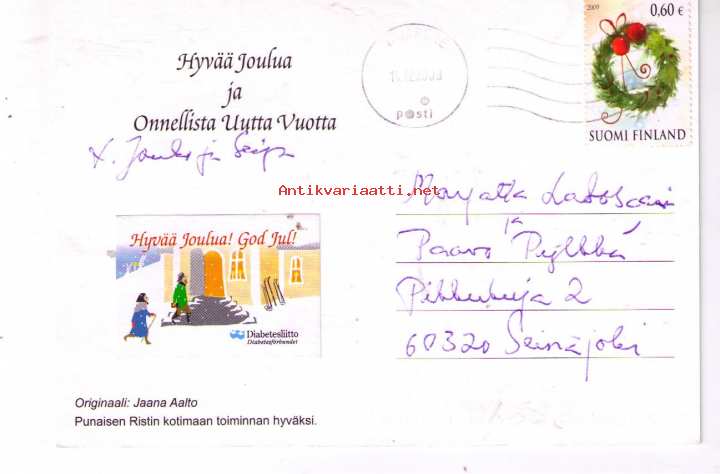 Hyvää Joulua
ja
Onnellista Uutta Vuotta
t. Jouko ja Seija
2009
0,60 €
SUOMI FINLAND
posti
Antikvariaatti.net
Marjatta
ja
Paavo
2
60320 Seinäjoki
Hyvää Joulua! God Jul!
Diabetesliitto
Diabetesförbundet
Originaali: Jaana Aalto
Punaisen Ristin kotimaan toiminnan hyväksi.